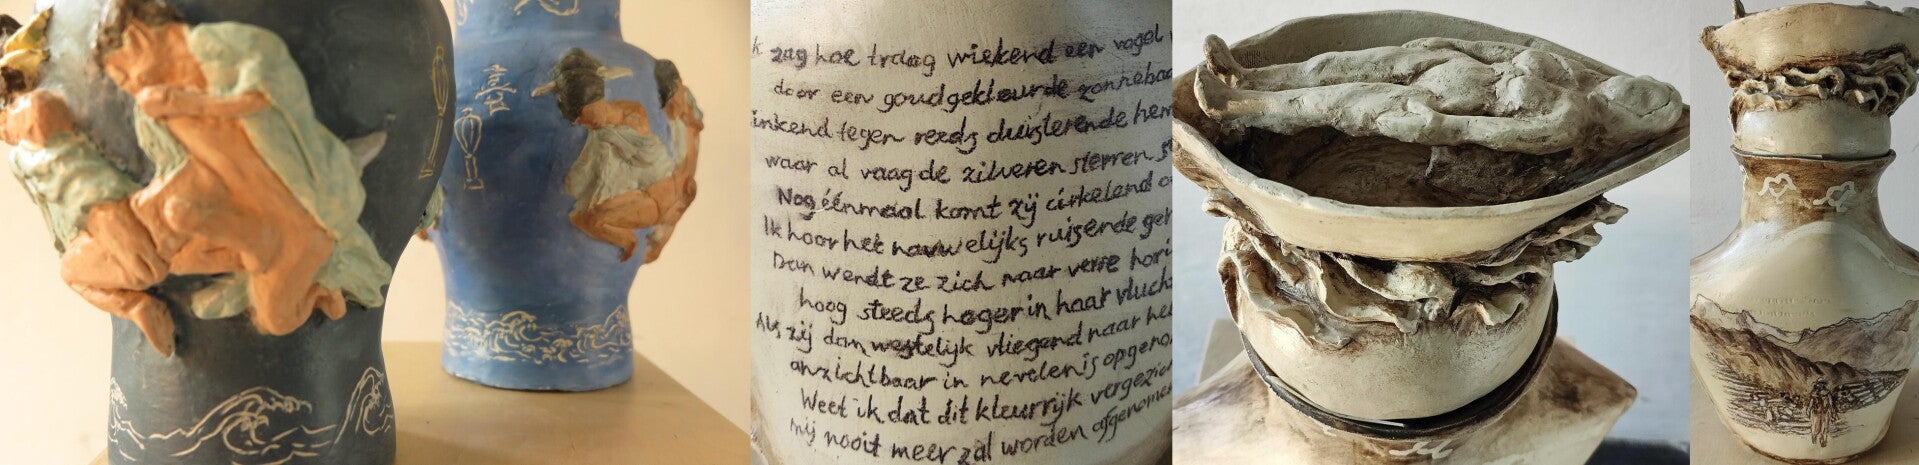 zag hoe traag wiekend een vogel
door een goudgekleurde zonnebaa
inkend tegen reeds duisterende hem
waar al vaag de zilveren sterren
Nog éénmaal komt zij cirkelend
Ik hoor het nauwelijks ruisende ger
Dan wendt ze zich naar verre hori
hoog steeds hoger in haar vlucht
Als zij dan westelijk vliegend naar he
onzichtbaar in nevelen is opgeno
Weet ik dat dit kleurrijk vergezich
mij nooit meer zal worden afgenomen